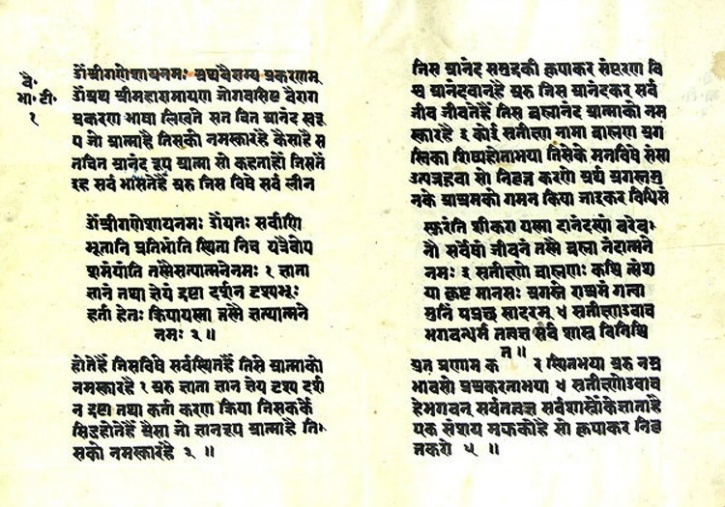 वै॰
भा॰ टी॰
१
डोंश्रीगणेशायनमः अथवैराग्य प्रकरणम्
डोंअथ श्रीमहारामायण जोगवसिष्ट वैराग
प्रकरण भाषा लिखते सत चित आनंद सरू
प जो आत्माहै तिसकी नमस्कारहै कैसाहै स
तचित आनंद रूप आत्मा सो कहताहों जिसतें
इह सर्व भासतेहैं अरु जिस विषे सर्व लीन
डोंश्रीगणेशायनमः डोंयतः सर्वाणि
भूतानि प्रतिभांति स्थिता निच यत्रैवोप
शमंयांति तस्मैसत्यात्मनेनमः १ ज्ञाता
ज्ञानं तथा ज्ञेयं द्रष्टा दर्शन दृश्यभूः
कर्ता हेतुः क्रियायस्मा त्तस्मै ज्ञप्त्यात्मने
नमः २ ॥
होतेहैं जिसविषे सर्वस्थितहैं तिसे आत्माको
नमस्कारहै १ अरु ज्ञाता ज्ञान ज्ञेय दृश्य दर्श
न द्रष्टा तथा कर्ता करण क्रिया जिसकर्के
सिद्धहोतेहैं ऐसा जो ज्ञानरूप आत्माहै ति॰
सको नमस्कारहै २ ॥
जिस आनंद समुद्रकी कृपाकर संपूरण वि
श्व आनंदवानहै अरु जिस आनंदकर सर्व
जीव जीवतेहैं तिस ब्रह्मानंद आत्माको नम
स्कारहै ३ कोई सुतीक्ष्ण नामा ब्राह्मण अग
स्तिका शिष्यहोताभया तिसके मनविषे संसा
उत्पन्नहूवा सो निवृत्त करणे अर्थ अगस्तमु
नके आश्रमको गमन किया जाइकर विधिसं
स्फुरंति शीकरा यस्मा दानंदस्यां बरेव॰
नौ सर्वेषां जीवनं तस्मै ब्रह्मा नंदात्मने
नमः ३ सुतीक्ष्णो ब्राह्मणः कश्चि त्संश
या कृष्ट मानसः अगस्ते राश्रमं गत्वा
मुनिं पप्रच्छ सादरम् ४ सुतीक्ष्णोउवाच
भगवन्धर्म तत्वज्ञ सर्व शास्त्र विनिश्चि
त ॥
युत प्रणाम क र स्थितभया अरु नम्र
भावसों प्रश्नकरताभया ४ सुतीक्ष्णोउवाच
हेभगवन् सर्वतत्वज्ञ सर्वशास्त्रोंकेज्ञाताहै
एक संशय मुझकोहै सो कृपाकर निवृ
त्तकरो ५ ॥